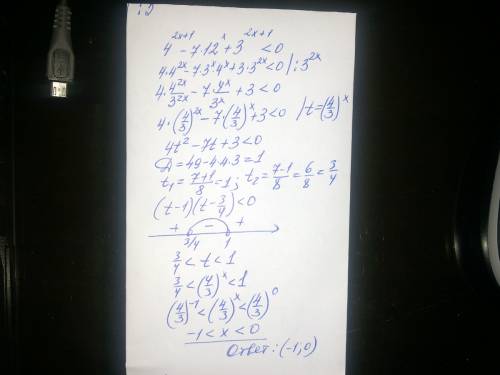 4^{2x+1} - 7·12^x + 3^{2x+1} < 0
4·4^{2x} - 7·3^x 4^x + 3·3^{2x} < 0 / :3^{2x}
4·\frac{4^{2x}}{3^{2x}} - 7·\frac{4^x}{3^x} + 3 < 0
4·(\frac{4}{3})^{2x} - 7(\frac{4}{3})^x + 3 < 0 / t = (\frac{4}{3})^x
4t^2 - 7t + 3 < 0
D = 49 - 4·4·3 = 1
t_1 = \frac{7+1}{8} = 1; t_2 = \frac{7-1}{8} = \frac{6}{8} = \frac{3}{4}
(t-1)(t-\frac{3}{4}) < 0
+ - +
3/4 1
\frac{3}{4} < t < 1
\frac{3}{4} < (\frac{4}{3})^x < 1
(\frac{4}{3})^{-1} < (\frac{4}{3})^x < (\frac{4}{3})^0
-1 < x < 0
Ответ: (-1; 0)